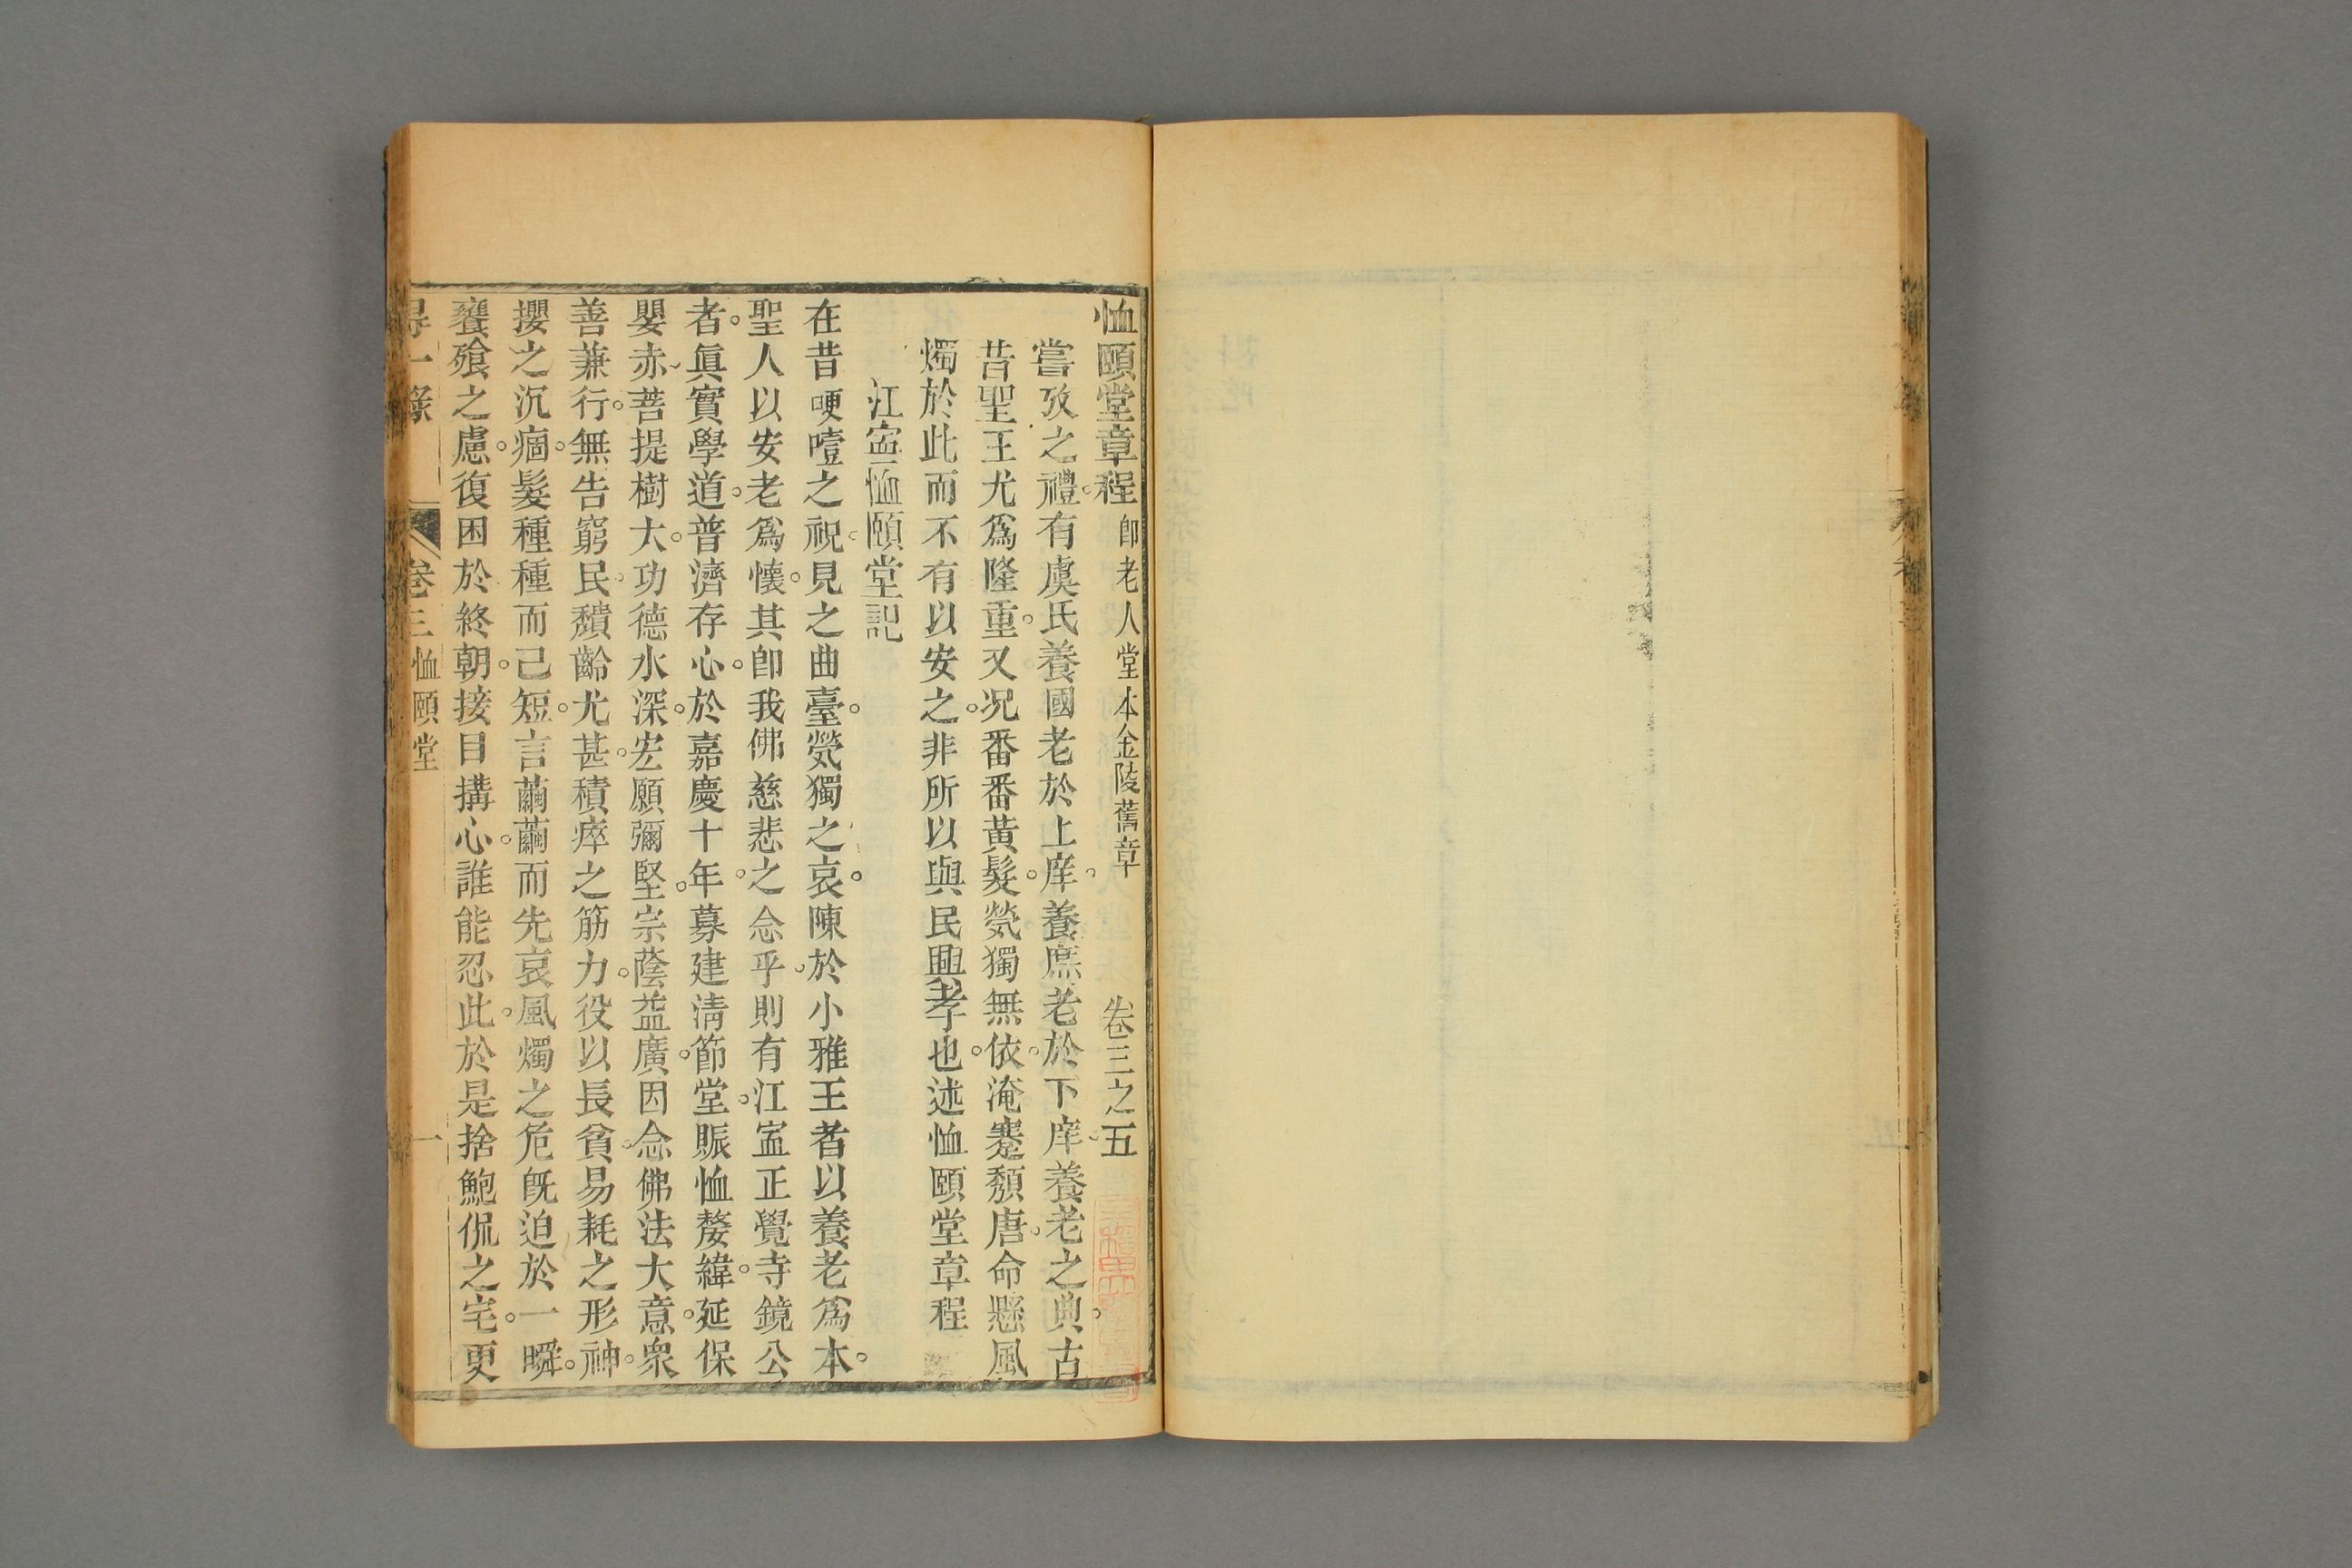 恤頤堂章程 卽老人堂本金陵舊章 卷三之五
嘗攷之禮。有虞氏養國老於上庠。養庶老於下庠。養老之典。古
昔聖王尤爲隆重。又况番番黃髮。煢獨無依。淹蹇頽唐。命懸風
燭於此而不有以安之。非所以與民興孝也。述恤頤堂章程
江寍恤頤堂記
在昔哽噎之祝。見之曲臺。煢獨之哀。陳於小雅王者以養老爲本。
聖人以安老爲懷。其卽我佛慈悲之念乎。則有江寍正覺寺鏡公
者。眞實學道。普濟存心。於嘉慶十年。募建淸節堂。賑恤嫠緯。延保
嬰赤。菩提樹大。功德水深。宏願彌堅。宗蔭益廣。因念佛法大意。衆
善兼行。無告窮民。穨齡尤甚。積瘁之筋力。役以長貧。易耗之形神。
攖之沉痼。髮種種而己短。言薾薾而先哀。風燭之危旣迫於一瞬。
饔飱之慮。復困於終朝。接目搆心。誰能忍此。於是捨鮑侃之宅。更
得一錄 卷三恤頤堂 一